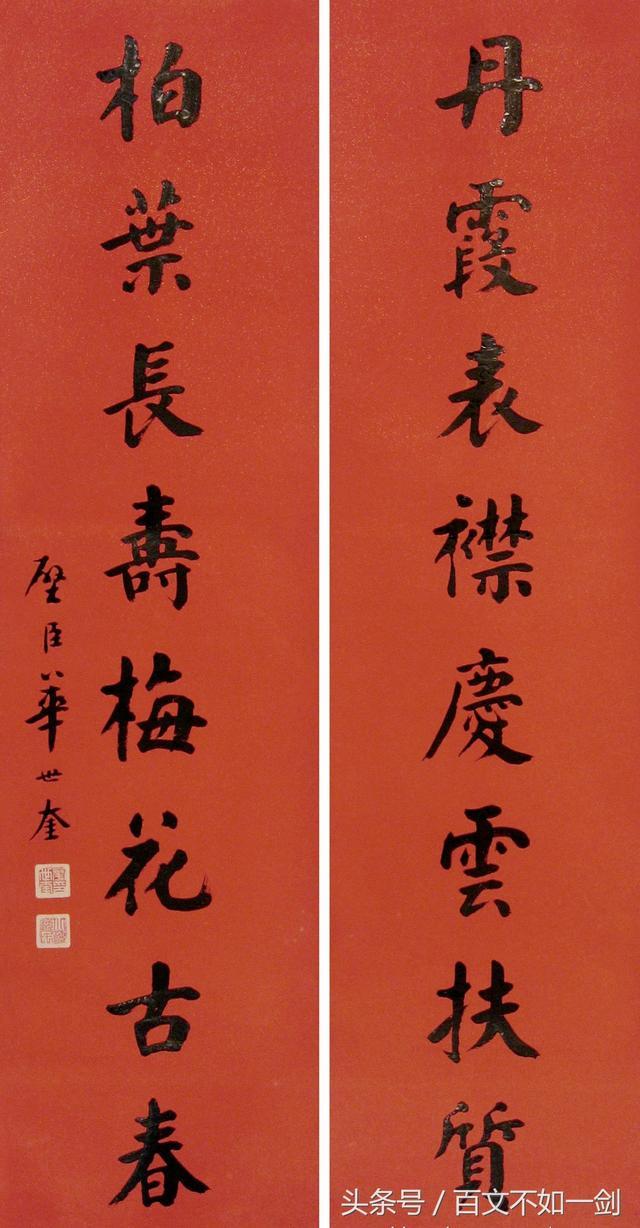 丹霞表襟慶雲扶質
柏葉長壽梅花古春
壁臣華世奎
头条号 / 百文不如一剑